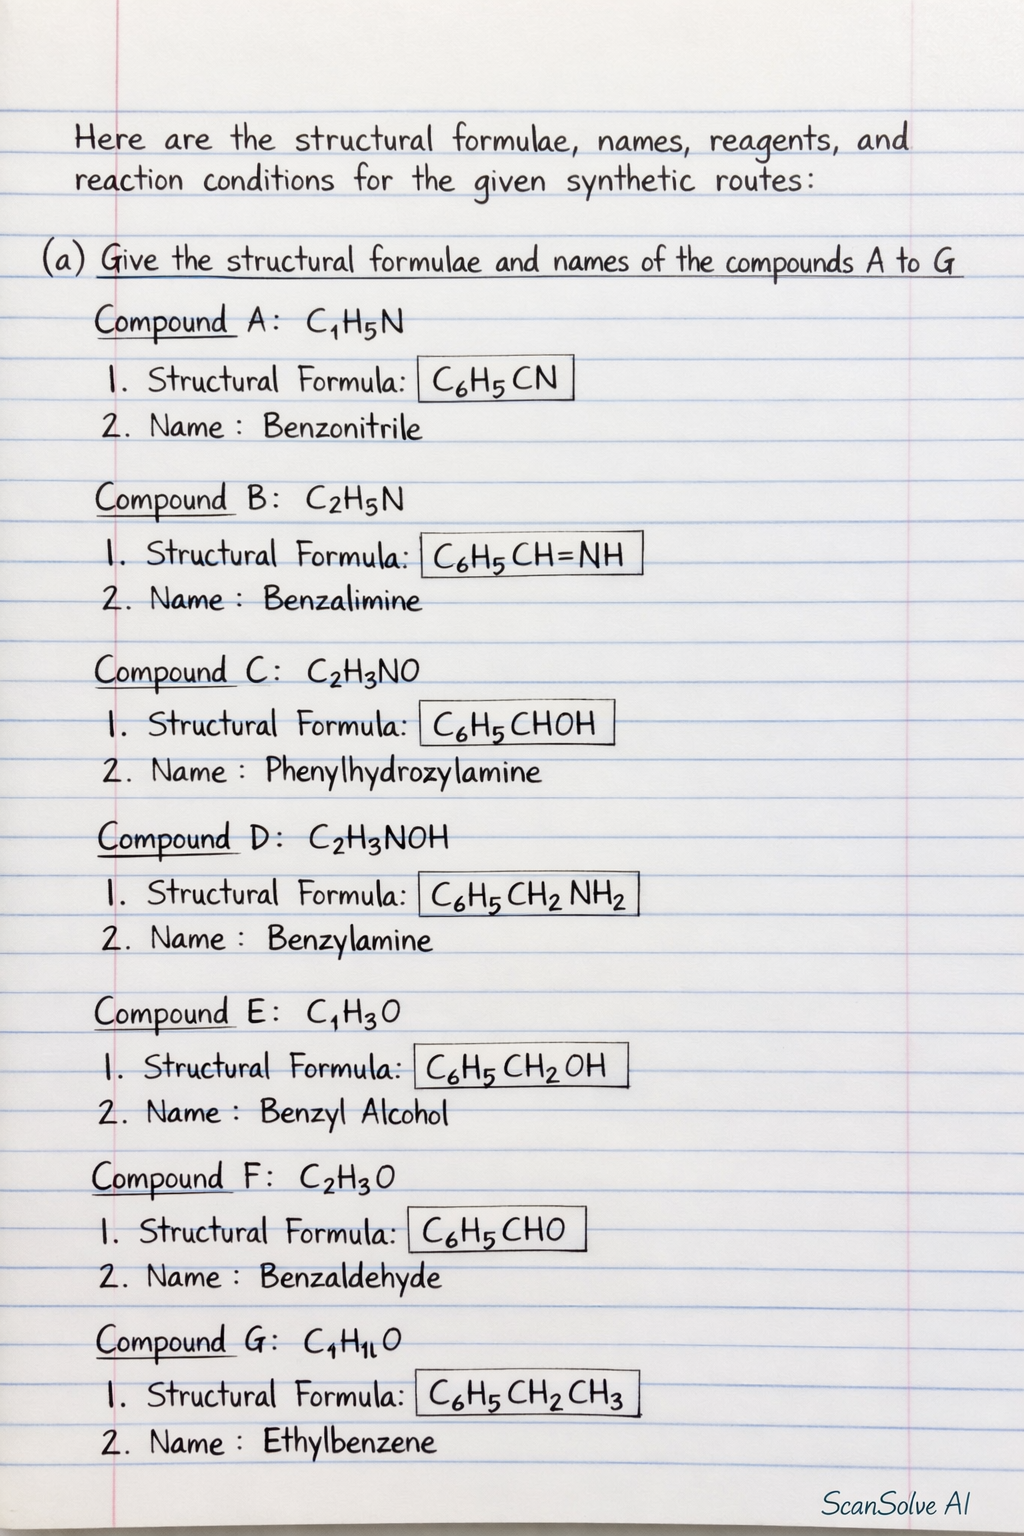 Here are the structural formulae, names, reagents, and
reaction conditions for the given synthetic routes:
(a) Give the structural formulae and names of the compounds A to G
Compound A: C₁H₅N
1. Structural Formula: C₆H₅CN
2. Name : Benzonitrile
Compound B: C₂H₅N
1. Structural Formula: C₆H₅CH=NH
2. Name : Benzalimine
Compound C: C₂H₃NO
1. Structural Formula: C₆H₅CHOH
2. Name : Phenylhydrozylamine
Compound D: C₂H₃NOH
1. Structural Formula: C₆H₅CH₂NH₂
2. Name : Benzylamine
Compound E: C₁H₃O
1. Structural Formula: C₆H₅CH₂OH
2. Name : Benzyl Alcohol
Compound F: C₂H₃O
1. Structural Formula: C₆H₅CHO
2. Name : Benzaldehyde
Compound G:
1. Structural Formula: C₆H₅CH₂CH₃
2. Name : Ethylbenzene
ScanSolve AI